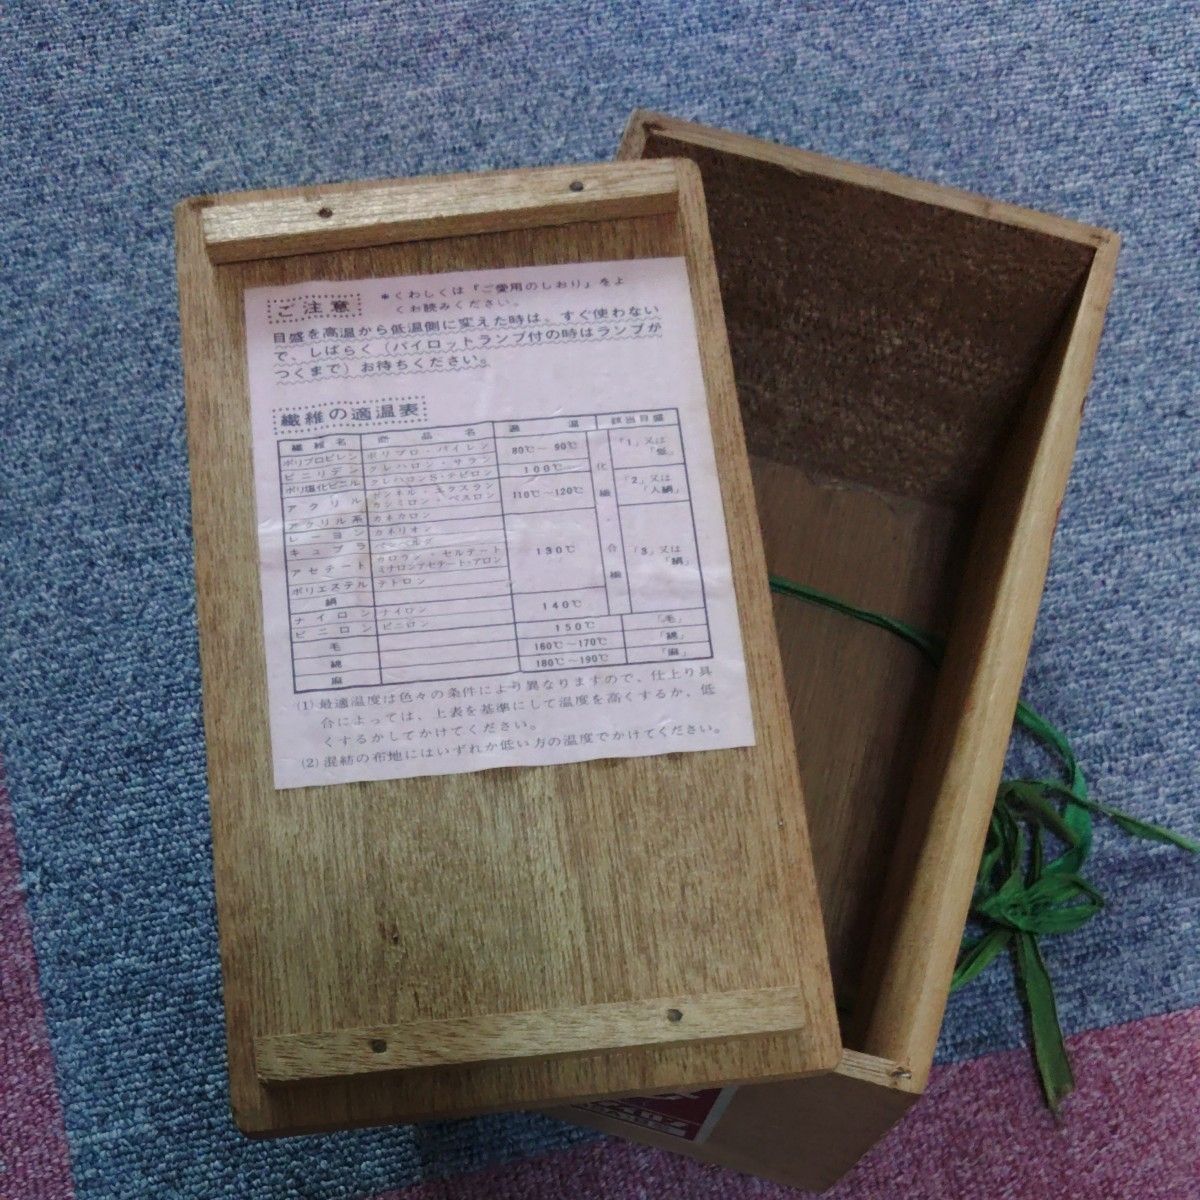 ご注意
*くわしくは『ご愛用のしおり』をよ
くお読みください。
目盛を高温から低温側に変えた時は、すぐ使わない
で、しばらく(パイロットランプ付の時はランプが
つくまで)お待ちください。
繊維の適温表
繊維名 商品名 適温 該当目盛
ポリプロピレン ポリプロ・パイレン 80℃～90℃ 「1」又は「低」
ビニリデン クレハロン・サラン
ポリ塩化ビニル クレハロンS・テビロン 100℃ 「2」又は「人絹」
アクリル ボンネル・エクスラン
カシミロン・ベスロン 110℃～120℃
アクリル系 カネカロン
レーヨン カネリオン
キュプラ ベンベルグ
アセテート カロラン・セルテート
ミナロンアセテート・アロン 130℃ 「3」又は「絹」
ポリエステル テトロン
絹
ナイロン ナイロン 140℃
ビニロン ビニロン
化繊・合繊
毛 150℃ 「毛」
綿 160℃～170℃ 「綿」
麻 180℃～190℃ 「麻」
(1) 最適温度は色々の条件により異なりますので、仕上り具
合によっては、上表を基準にして温度を高くするか、低
くするかしてかけてください。
(2) 混紡の布地にはいずれか低い方の温度でかけてください。